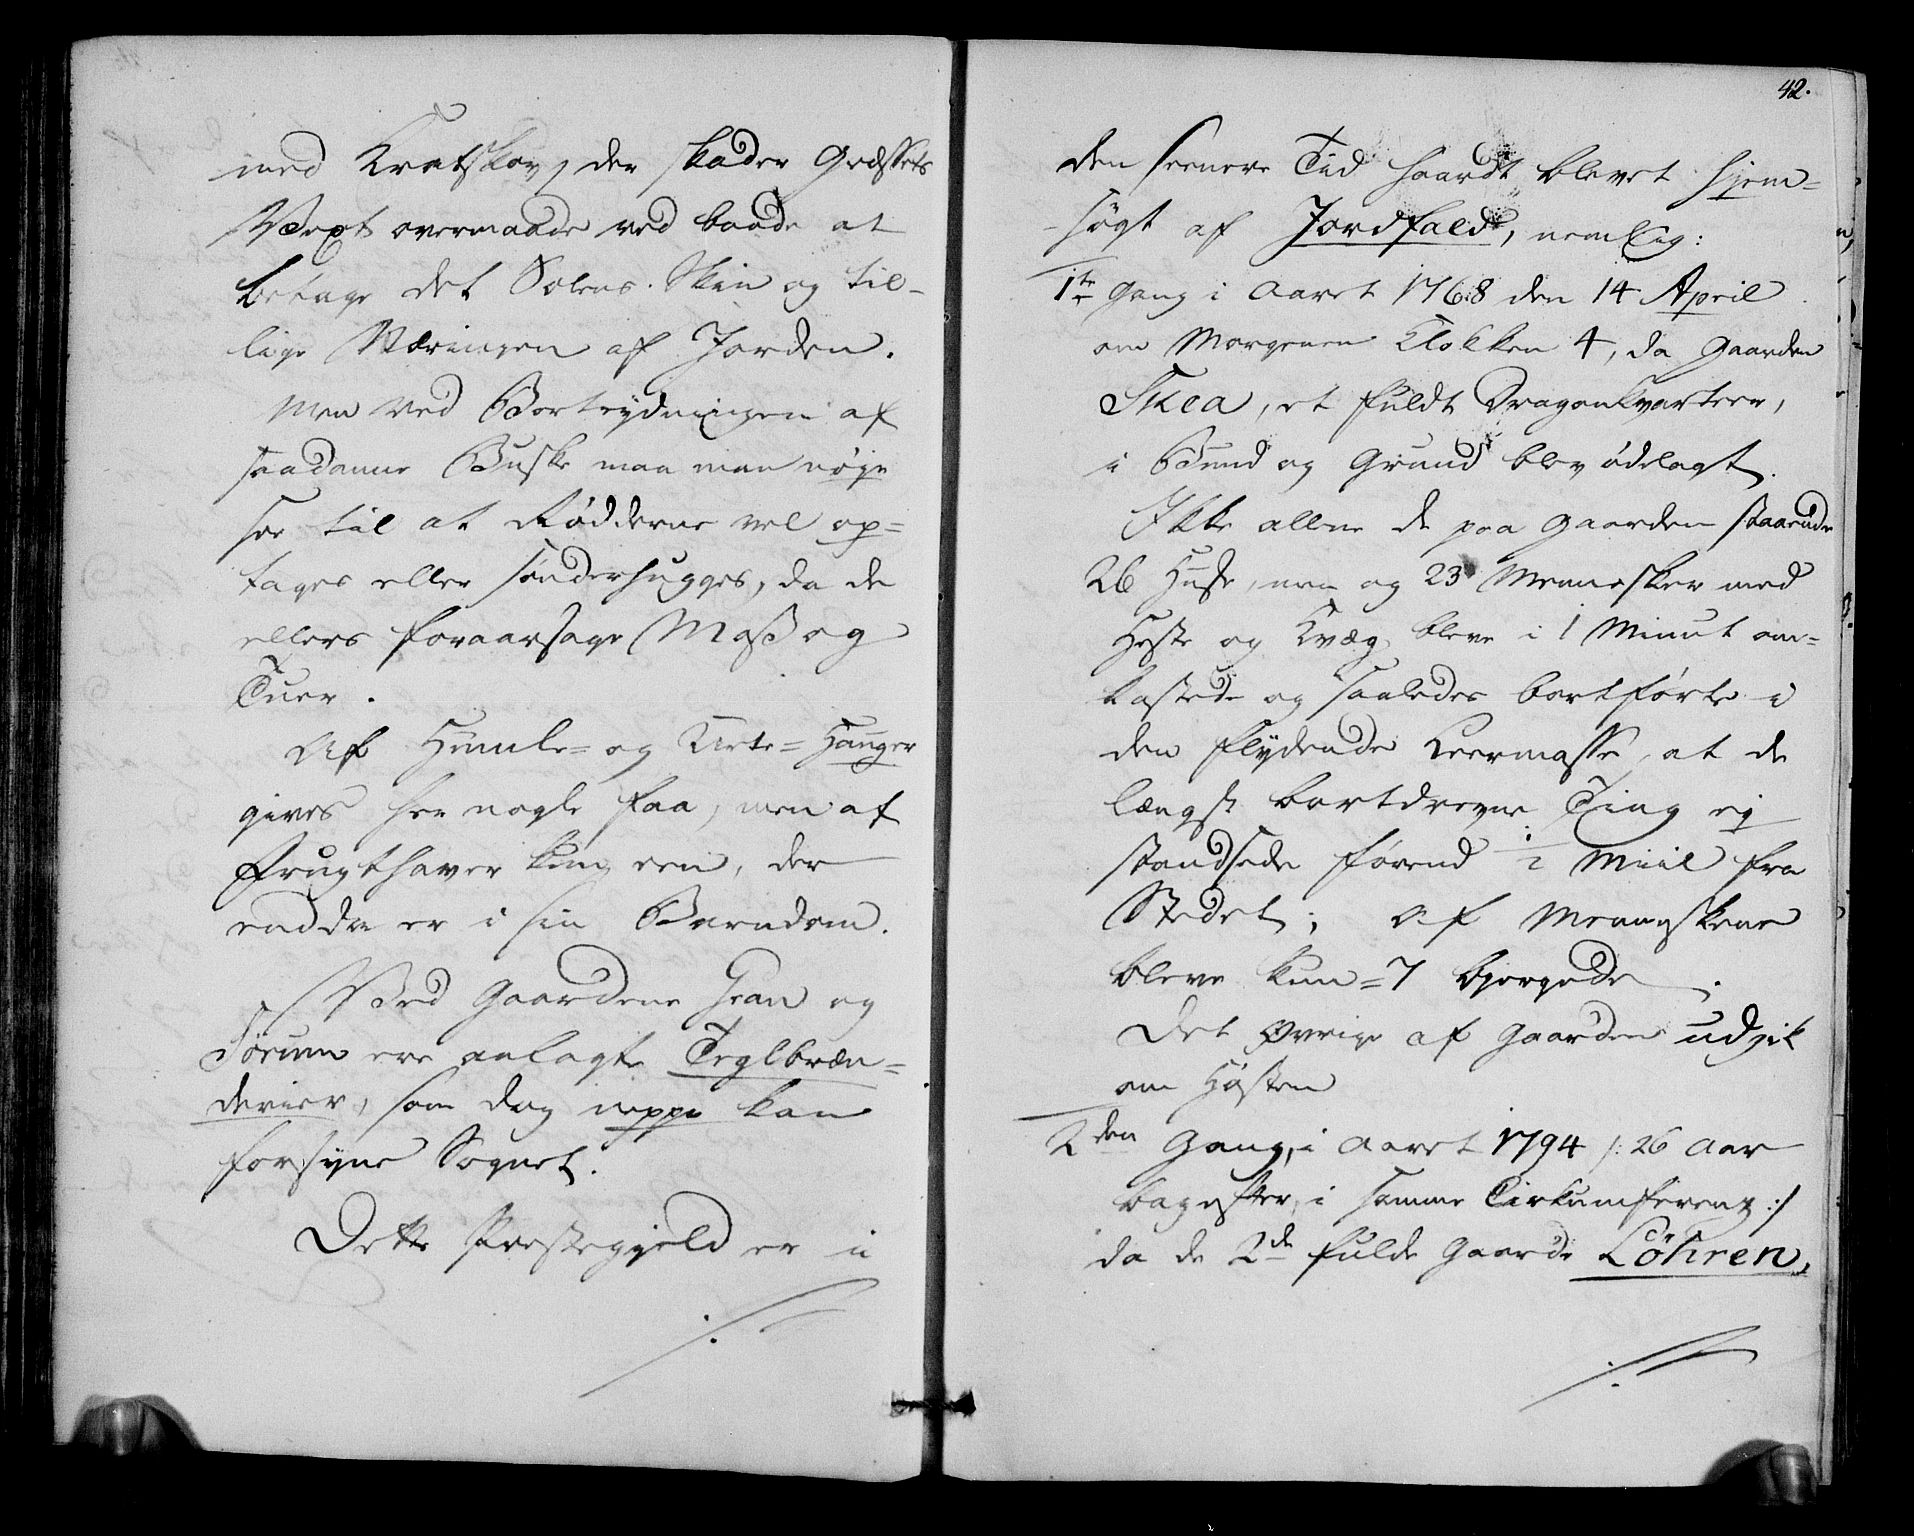 med Kratskov, der skader Græssets
Vext overmaade ved baade at
betage det Solens Skin og til-
lige Næringen af Jorden.
Men ved Bortrydningen af
saadanne Buske maa man nøje
see til at Rødderne vel op=
tages eller sønderhugges, da de
ellers foraarsage Mosß og
Tuer.
Af Humle= og Urte= Hauger
gives her nogle faa, men af
Frugthaver kun een, der
endda er i sin Barndom.
Ved Gaardene Hean og
Sørum ere anlagte Teglbræn=
derier, som dog neppe kan
forsyne Sognet.
Dette Præstegjeld er i
42.
den seenere Tid haardt blevet hjem=
søgt af Jordfald, nemlig:
1te Gang i Aaret 1768 den 14 April
om Morgenen Klokken 4, da Gaarden
Skea, et fuldt Dragonkvarteer,
i Bund og Grund blev ødelagt.
Ikke allene de paa Gaarden staaende
26 Huse, men og 23 Mennesker med
Heste og Kvæg bleve i 1 Minut om=
kastede og saaledes bortførte i
den flydende Leermasse, at de
længst bortdrevne Ting ej
standsede førend Miil fra
Stedet; Af Menneskene
bleve kun = 7 bjergede.
Det øvrige af Gaarden udgik
om Høsten
2den Gang, i Aaret 1794 /: 26 Aar
bagefter, i samme Cirkumferenz :/
da de 2de fulde Gaarde Löhren,